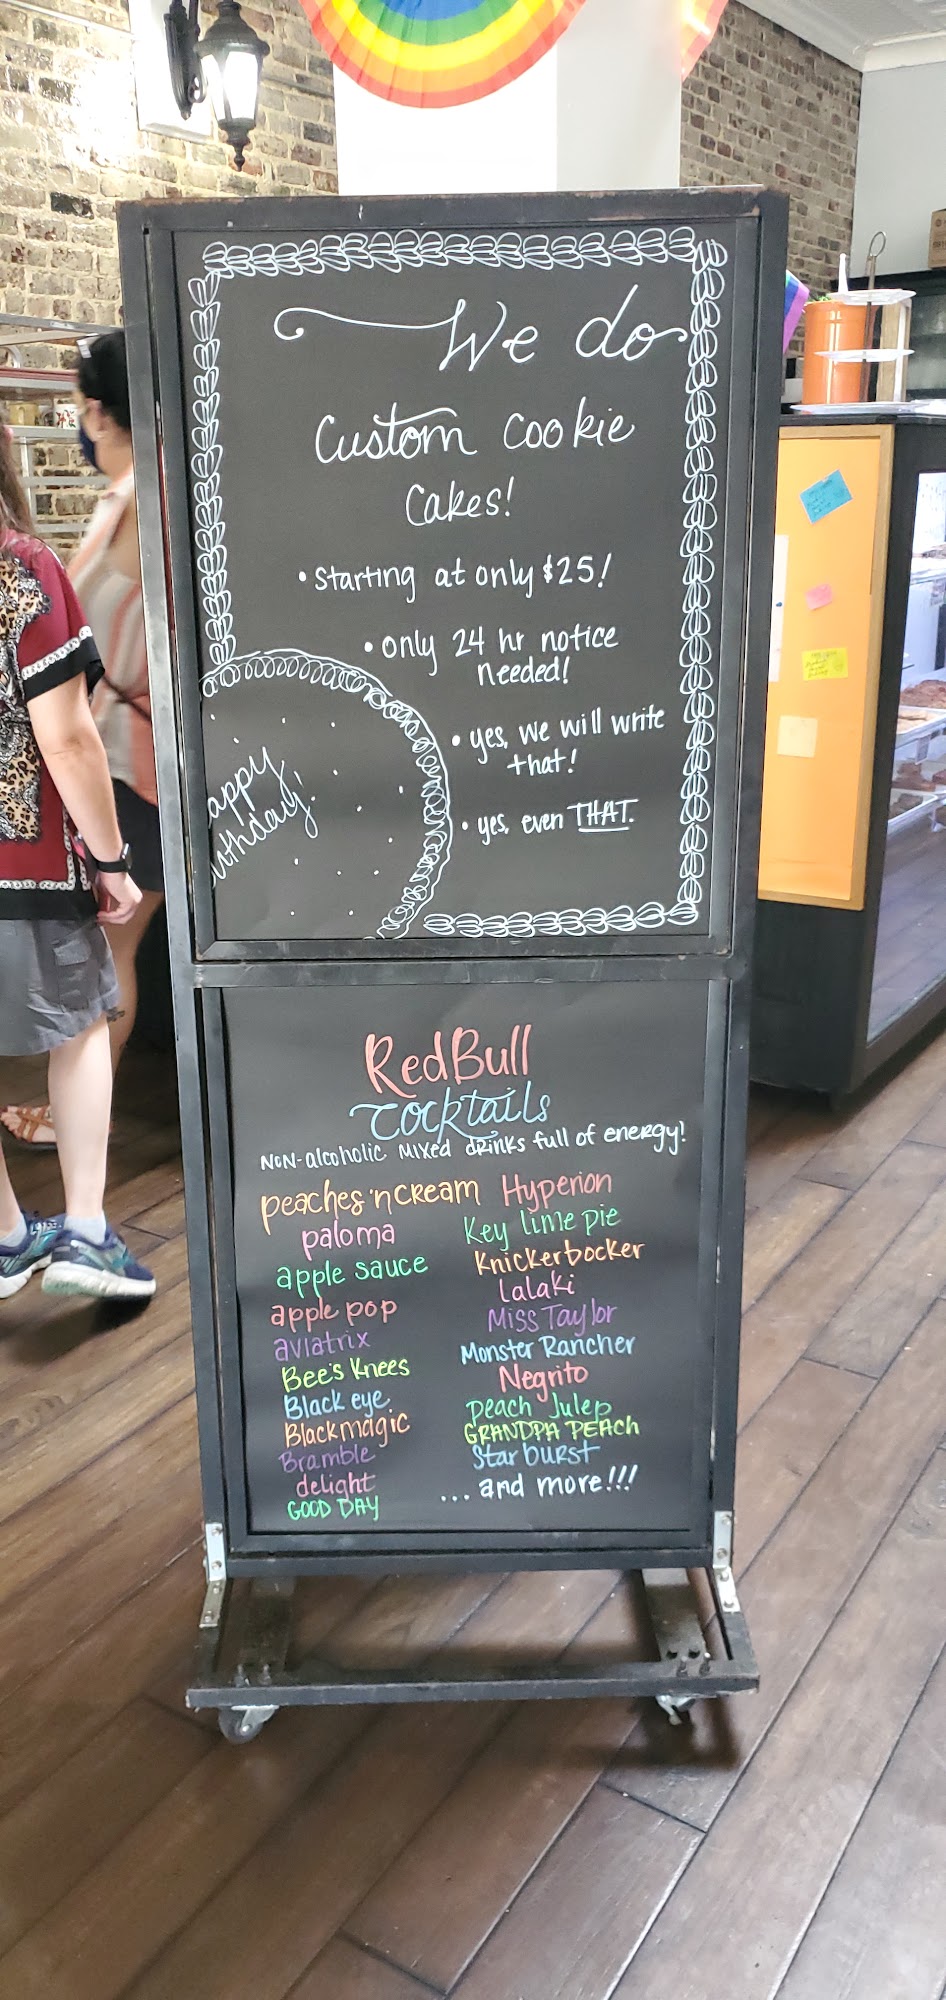 We do
Custom Cookie
Cakes!
• Starting at only $25!
• only 24 hr notice
needed!
• yes, we will write
that!
• yes, even THAT.
appy
irthday!
RedBull
Cocktails
Non-alcoholic mixed drinks full of energy!
peaches 'n cream
paloma
apple sauce
apple pop
aviatrix
Bee's Knees
Black eye
Blackmagic
Bramble
delight
GOOD DAY
Hyperion
Key lime pie
knickerbocker
lalaki
Miss Taylor
Monster Rancher
Negrito
peach Julep
GRANDPA PEACH
Starburst
... and more!!!